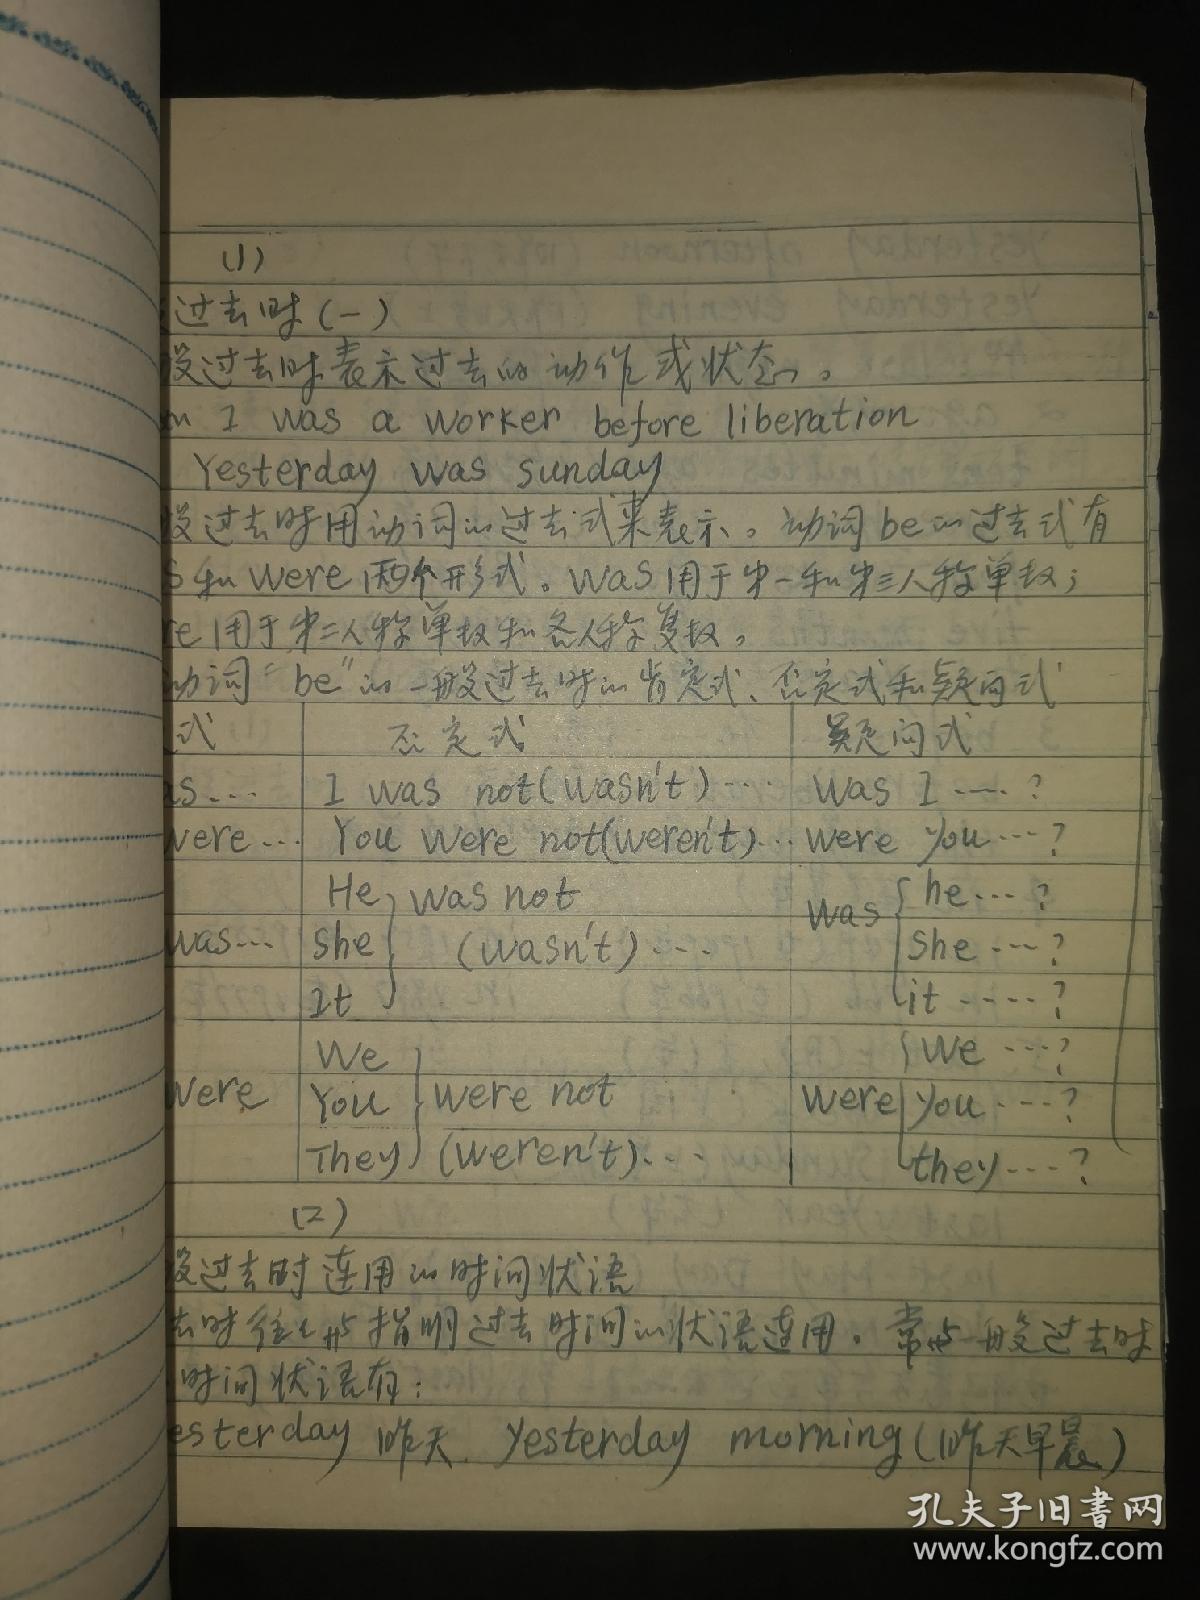 (1)
过去时(一)
般过去时表示过去的动作或状态。
I was a worker before liberation
Yesterday was sunday
般过去时用动词的过去式来表示。动词be的过去式有
s和were两个形式。was用于第一和第三人称单数；
re用于第二人称单数和各人称复数。
动词"be"的一般过去时的肯定式、否定式和疑问式
式 否定式 疑问式
as... I was not(wasn't)... Was I ...?
were... You were not(weren't)... were you...?
He was not he...?
was... She (wasn't)... was she...?
It it ....?
We we...?
were You were not were you...?
They (weren't)... they...?
(2)
般过去时连用的时间状语
去时往往与指明过去时间的状语连用。常与一般过去时
时间状语有：
esterday 昨天. yesterday morning(昨天早晨)
孔夫子旧书网
www.kongfz.com